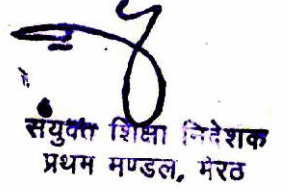 संयुक्त शिक्षा निदेशक
प्रथम मण्डल, मेरठ